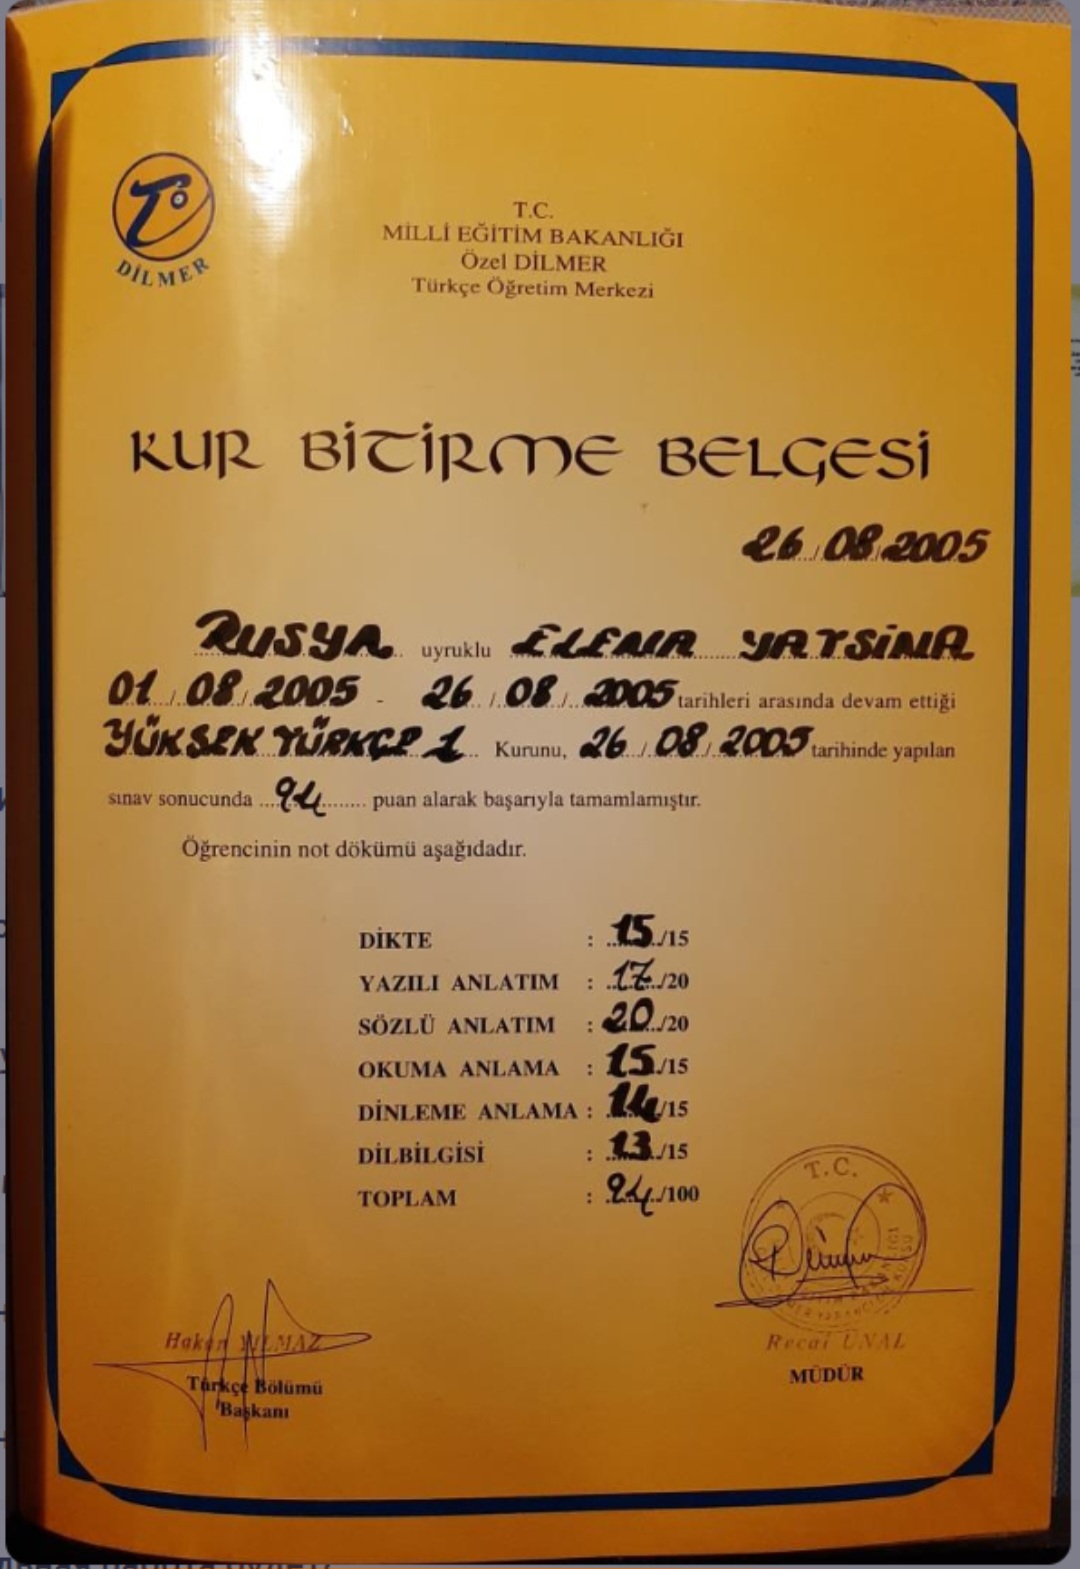 DİLMER
T.C.
MİLLİ EĞİTİM BAKANLIĞI
Özel DİLMER
Türkçe Öğretim Merkezi
KUR BİTİRME BELGESİ
26/08/2005
RUSYA uyruklu ELENA YATSİNA
01/08/2005 - 26/08/2005 tarihleri arasında devam ettiği
YÜKSEK TÜRKÇE 1 Kurunu, 26/08/2005 tarihinde yapılan
sınav sonucunda 94 puan alarak başarıyla tamamlamıştır.
Öğrencinin not dökümü aşağıdadır.
DİKTE : 15/15
YAZILI ANLATIM : 17/20
SÖZLÜ ANLATIM : 20/20
OKUMA ANLAMA : 15/15
DİNLEME ANLAMA : 14/15
DİLBİLGİSİ : 13/15
TOPLAM : 94/100
T.C.
Hakan YILMAZ
Türkçe Bölümü
Başkanı
Recai ÜNAL
MÜDÜR